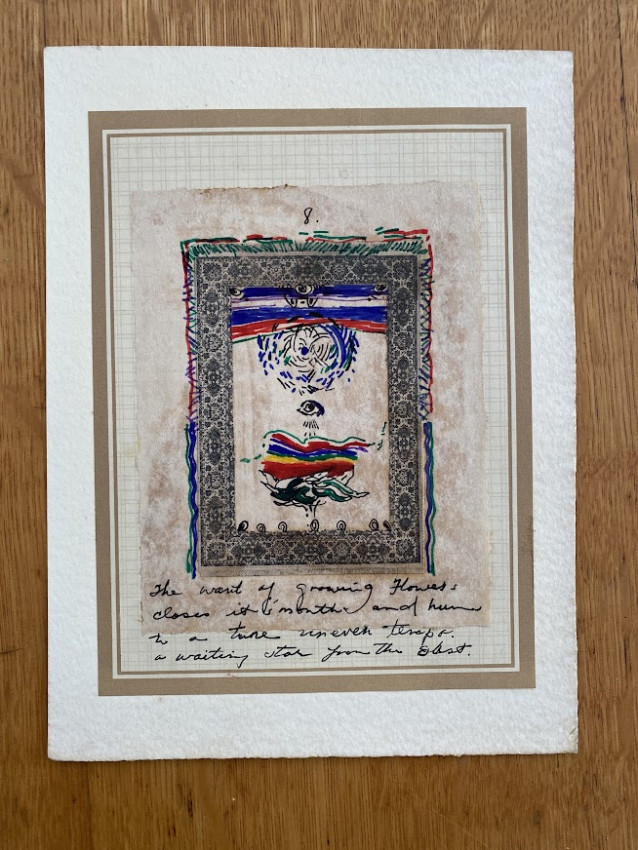 8.
The want of growing Flowers
closes it's mouth and hums
to a tune uneven tempo.
a waiting star from the East.